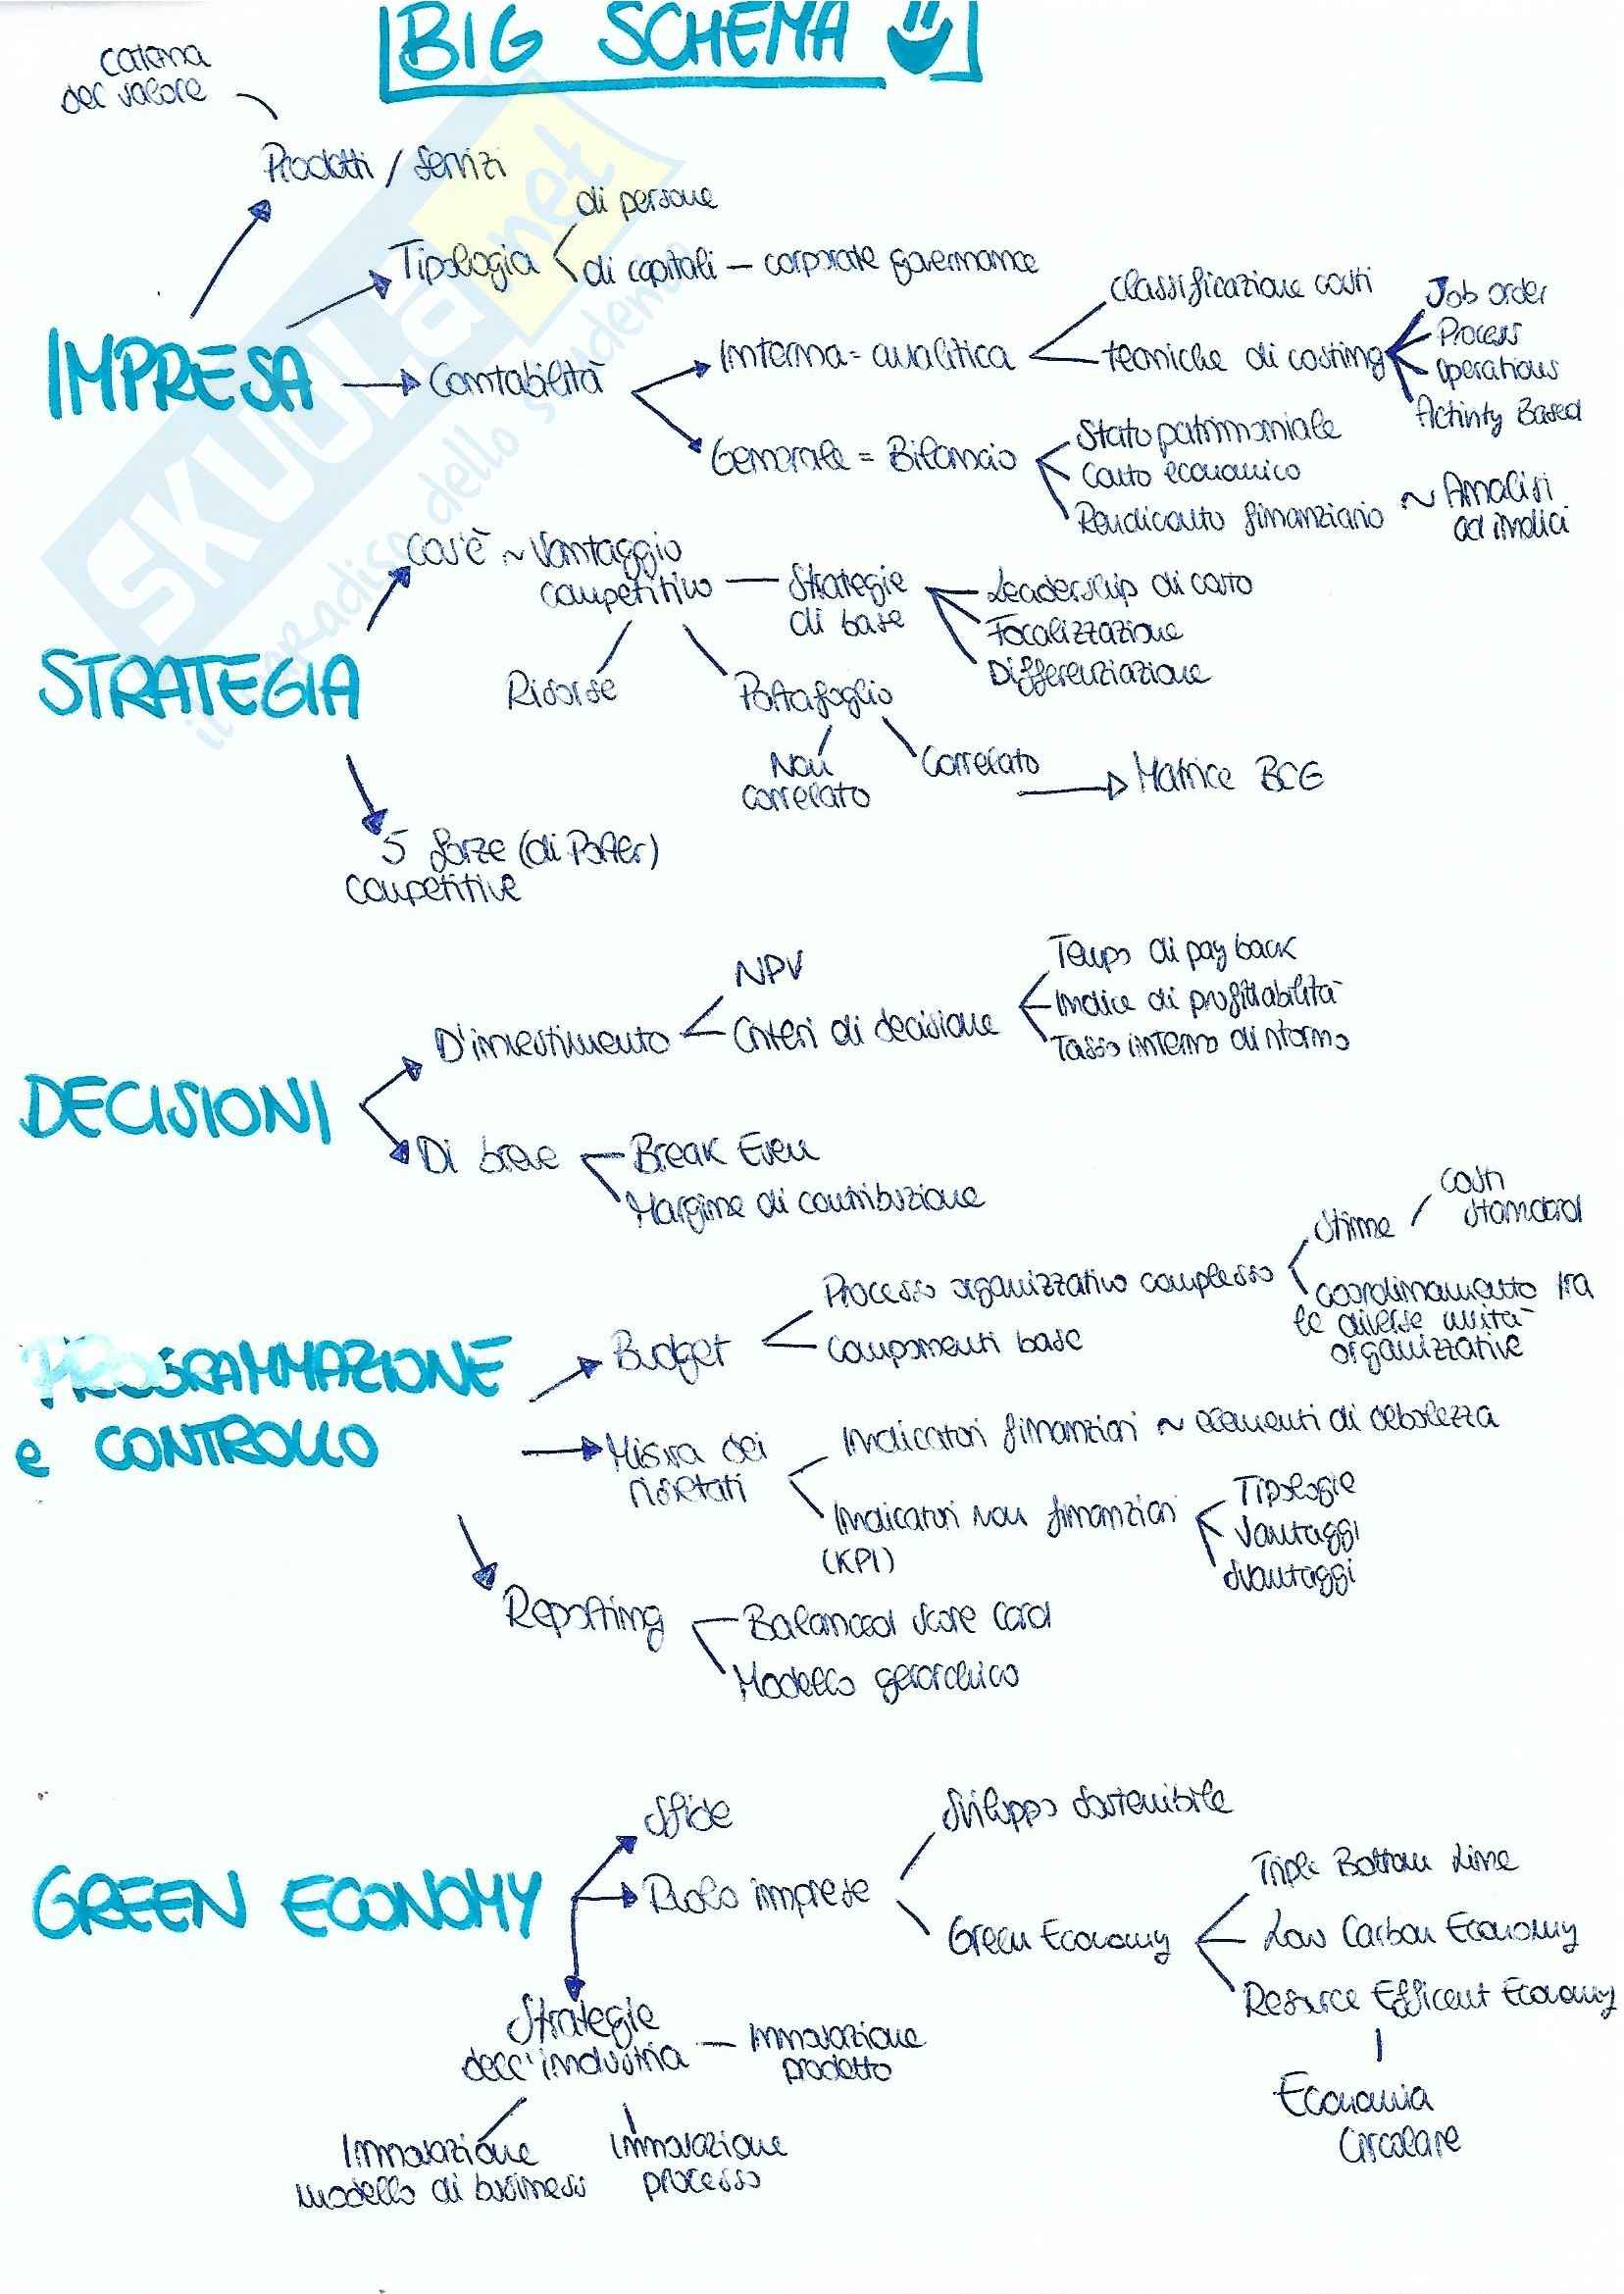 BIG SCHEMA
catena
del valore
Prodotti / Servizi
di persone
Tipologia
di capitali — corporate governance
IMPRESA
Contabilità
Interna = analitica
classificazione costi
tecniche di costing
Job order
Process
Operations
Activity Based
Generale = Bilancio
Stato patrimoniale
Conto economico
Rendiconto finanziario
~ Analisi
ad indici
SKUOLA.net
il paradiso dello studente
STRATEGIA
Cos'è ~ Vantaggio
competitivo
Strategie
di base
Leadership di costo
Focalizzazione
Differenziazione
Risorse
Portafoglio
Non
correlato
Correlato
Matrice BCG
5 forze (di Porter)
competitive
DECISIONI
D'investimento
NPV
Criteri di decisione
Tempo di pay back
Indice di profittabilità
Tasso interno di ritorno
Di breve
Break Even
Margine di contribuzione
PROGRAMMAZIONE
e CONTROLLO
Budget
Processo organizzativo complesso
Stime
costi
standard
coordinamento tra
le diverse unità
organizzative
Componenti base
Misura dei
risultati
Indicatori finanziari ~ elementi di debolezza
Indicatori non finanziari
(KPI)
Tipologie
Vantaggi
Svantaggi
Reporting
Balanced score card
Modello gerarchico
GREEN ECONOMY
Sfide
Ruolo imprese
Sviluppo sostenibile
Green Economy
Triple Bottom Line
Low Carbon Economy
Resource Efficent Economy
Economia
Circolare
Strategie
dell'industria
Innovazione
prodotto
Innovazione
modello di business
Innovazione
processo